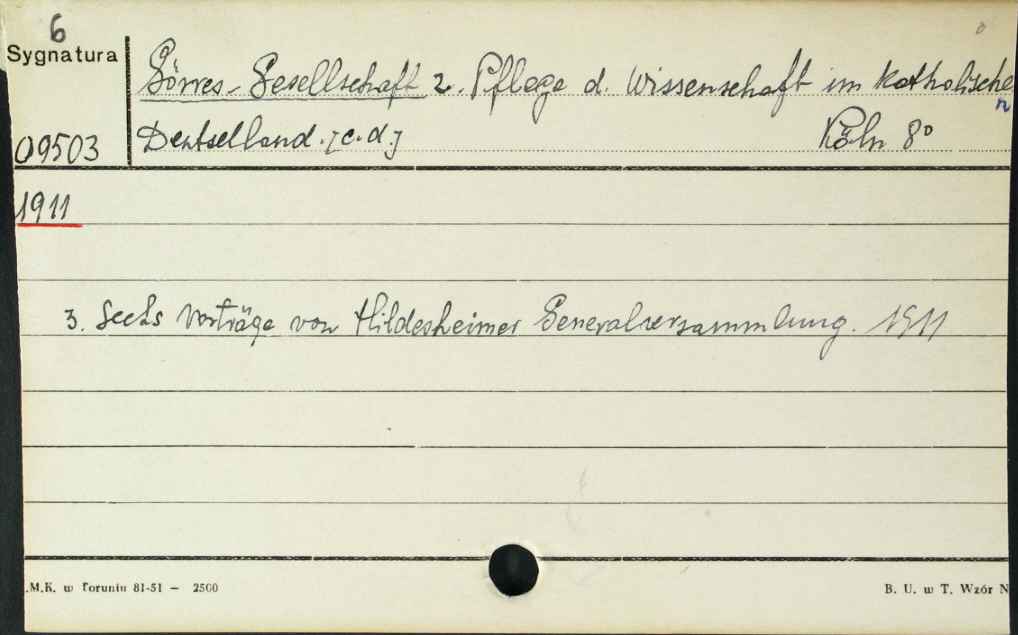 6
Sygnatura
Görres-Gesellschaft z. Pflege d. Wissenschaft im katholischen
09503
Deutselland. [c.d.] Köln 8°
1911
3. Sechs Vorträge von Hildesheimer Generalversammlung. 1911
.M.K. w Toruniu 81-51 — 2500
B. U. w T. Wzór N